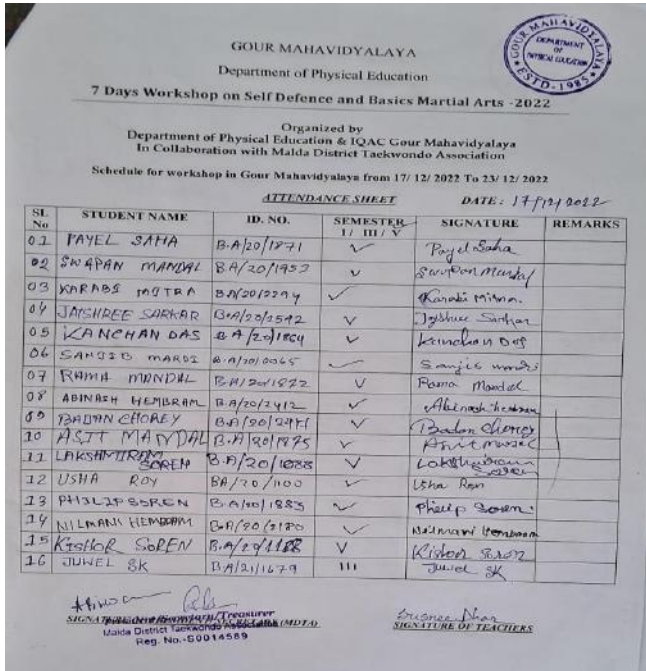 GOUR MAHAVIDYALAYA
DEPARTMENT
OF
PHYSICAL EDUCATION
ESTD-1985
GOUR MAHAVIDYALAYA
Department of Physical Education
7 Days Workshop on Self Defence and Basics Martial Arts -2022
Organized by
Department of Physical Education & IQAC Gour Mahavidyalaya
In Collaboration with Malda District Taekwondo Association
Schedule for workshop in Gour Mahavidyalaya from 17/ 12/ 2022 To 23/ 12/ 2022
ATTENDANCE SHEET DATE: 17/12/2022
SL No STUDENT NAME ID. NO. SEMESTER I/ III/ V SIGNATURE REMARKS
01 PAYEL SAHA B.A/20/1871 ✓ Payel Saha
02 SWAPAN MANDAL B.A/20/1953 ✓ Swapan Mandal
03 KARABI MITRA B.A/20/2294 ✓ Karabi Mitra.
04 JAISHREE SARKAR B.A/20/2542 ✓ Jayshree Sarkar
05 KANCHAN DAS B.A/20/1864 ✓ Kanchan Das
06 SANJIB MARDI B.A/20/0065 ✓ Sanjib
07 RAMA MANDAL B.A/20/1822 ✓ Rama Mandal
08 ABINASH HEMBRAM B.A/20/2412 ✓ Abinash Hembram
09 BADAN CHOREY B.A/20/2471 ✓ Badan Chorey
10 ASIT MANDAL B.A/20/1875 ✓
11 LAKSHMIRAM SOREN B.A/20/1088 ✓ Lakshmiram Soren
12 USHA ROY BA/20/1100 ✓ Usha Roy
13 PHILIP SOREN B.A/20/1883 ✓ Philip Soren.
14 NILMANI HEMBRAM B.A/20/2180 ✓ Nilmani Hembram
15 KISHOR SOREN B.A/20/1188 ✓ Kishor Soren
16 JUWEL SK B.A/21/1679 III Juwel SK
Treasurer
SIGNATURE (MDTA) SIGNATURE OF TEACHERS
Malda District Taekwondo Association
Reg. No.-S0014569